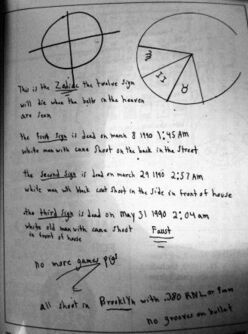 This is the Zodiac the twelve sign
will die when the belts in the heaven
are seen
the First Sign is dead on march 8 1990 1:45 AM
white man with cane shoot on the back in the street
the second Sign is dead on march 29 1990 2:57 AM
white man with black coat shoot in the side in front of house
the third Sign is dead on May 31 1990 2:04 am
white old man with cane shoot Faust
in front of house
no more games pigs
all shoot in Brooklyn with .380 RNL or 9mm
no grooves on bullet